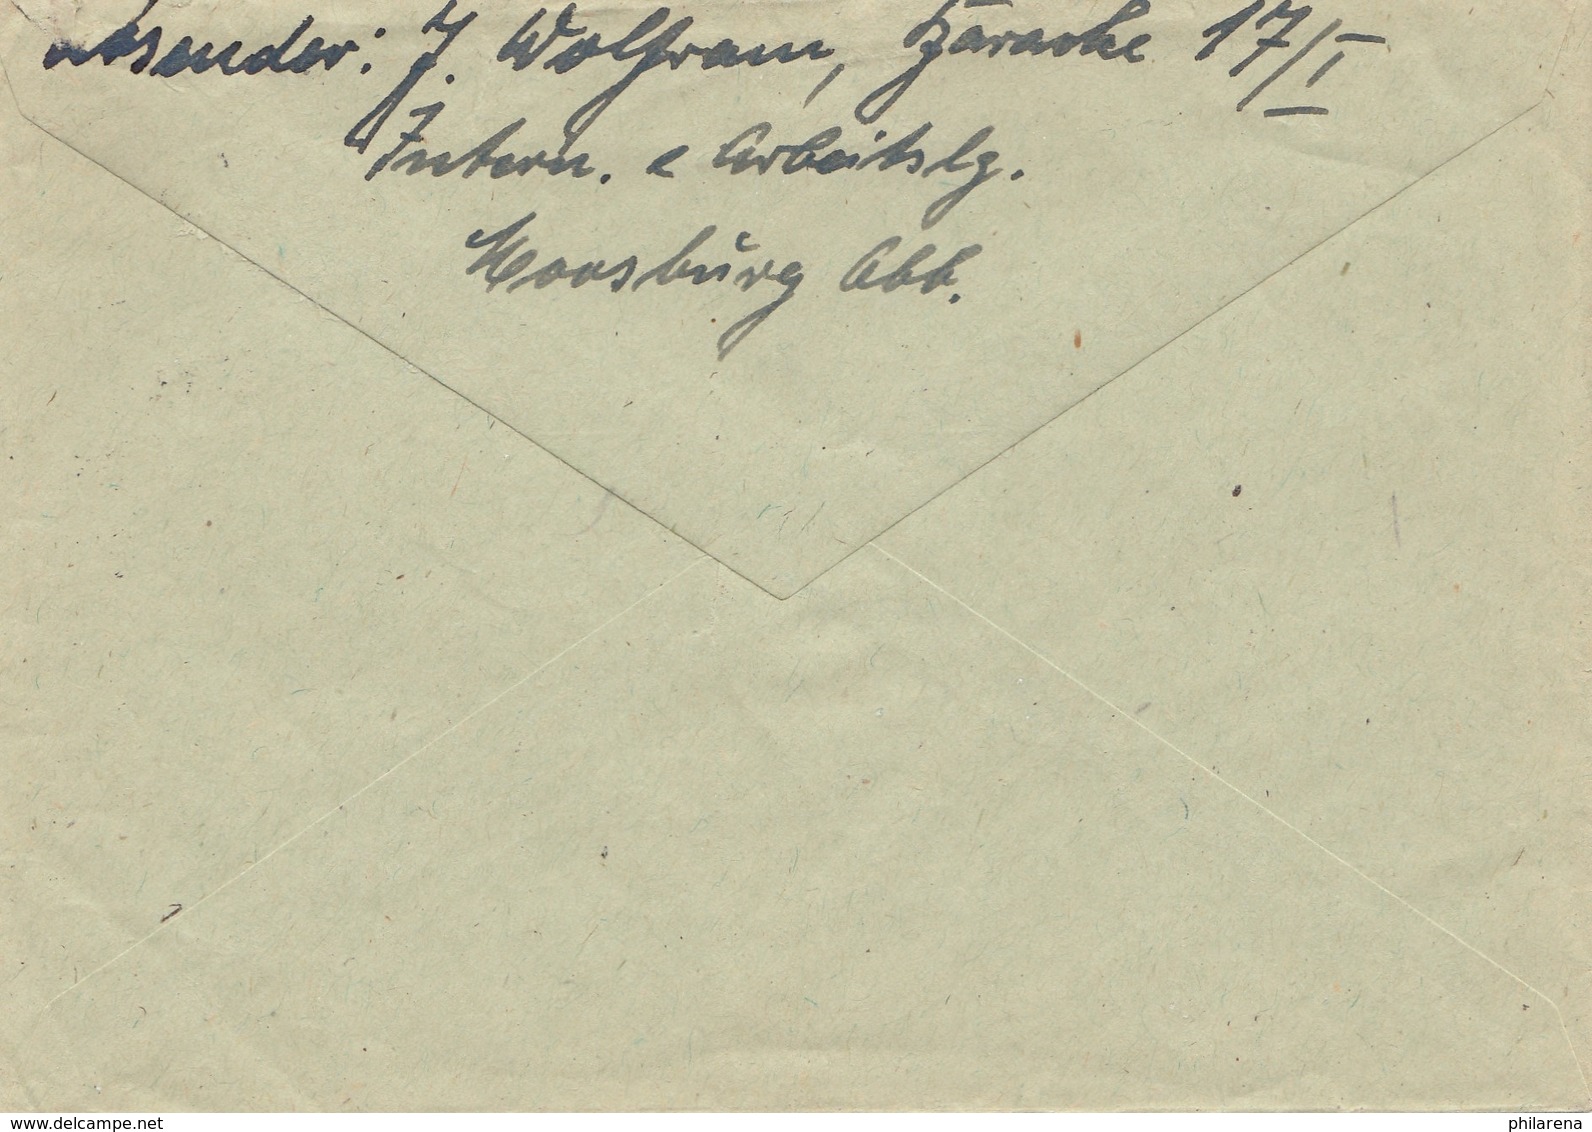 Absender: J. Wolfram, Baracke 17/I
Intern. e Arbeitslg.
Moosburg Obb.
www.delcampe.net
philarena